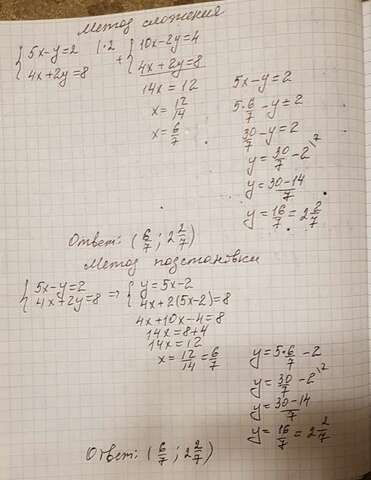 Метод сложения
{5x-y=2 |·2 {10x-2y=4
{4x+2y=8 + {4x+2y=8
14x=12
x=12/14
x=6/7
5x-y=2
5·6/7-y=2
30/7-y=2
y=30/7-2\7
y=30-14/7
y=16/7=2 2/7
Ответ: (6/7; 2 2/7)
Метод подстановки
{5x-y=2 => {y=5x-2
{4x+2y=8 {4x+2(5x-2)=8
4x+10x-4=8
14x=8+4
14x=12
x=12/14=6/7
y=5·6/7-2
y=30/7-2\2
y=30-14/7
y=16/7=2 2/7
Ответ: (6/7; 2 2/7)